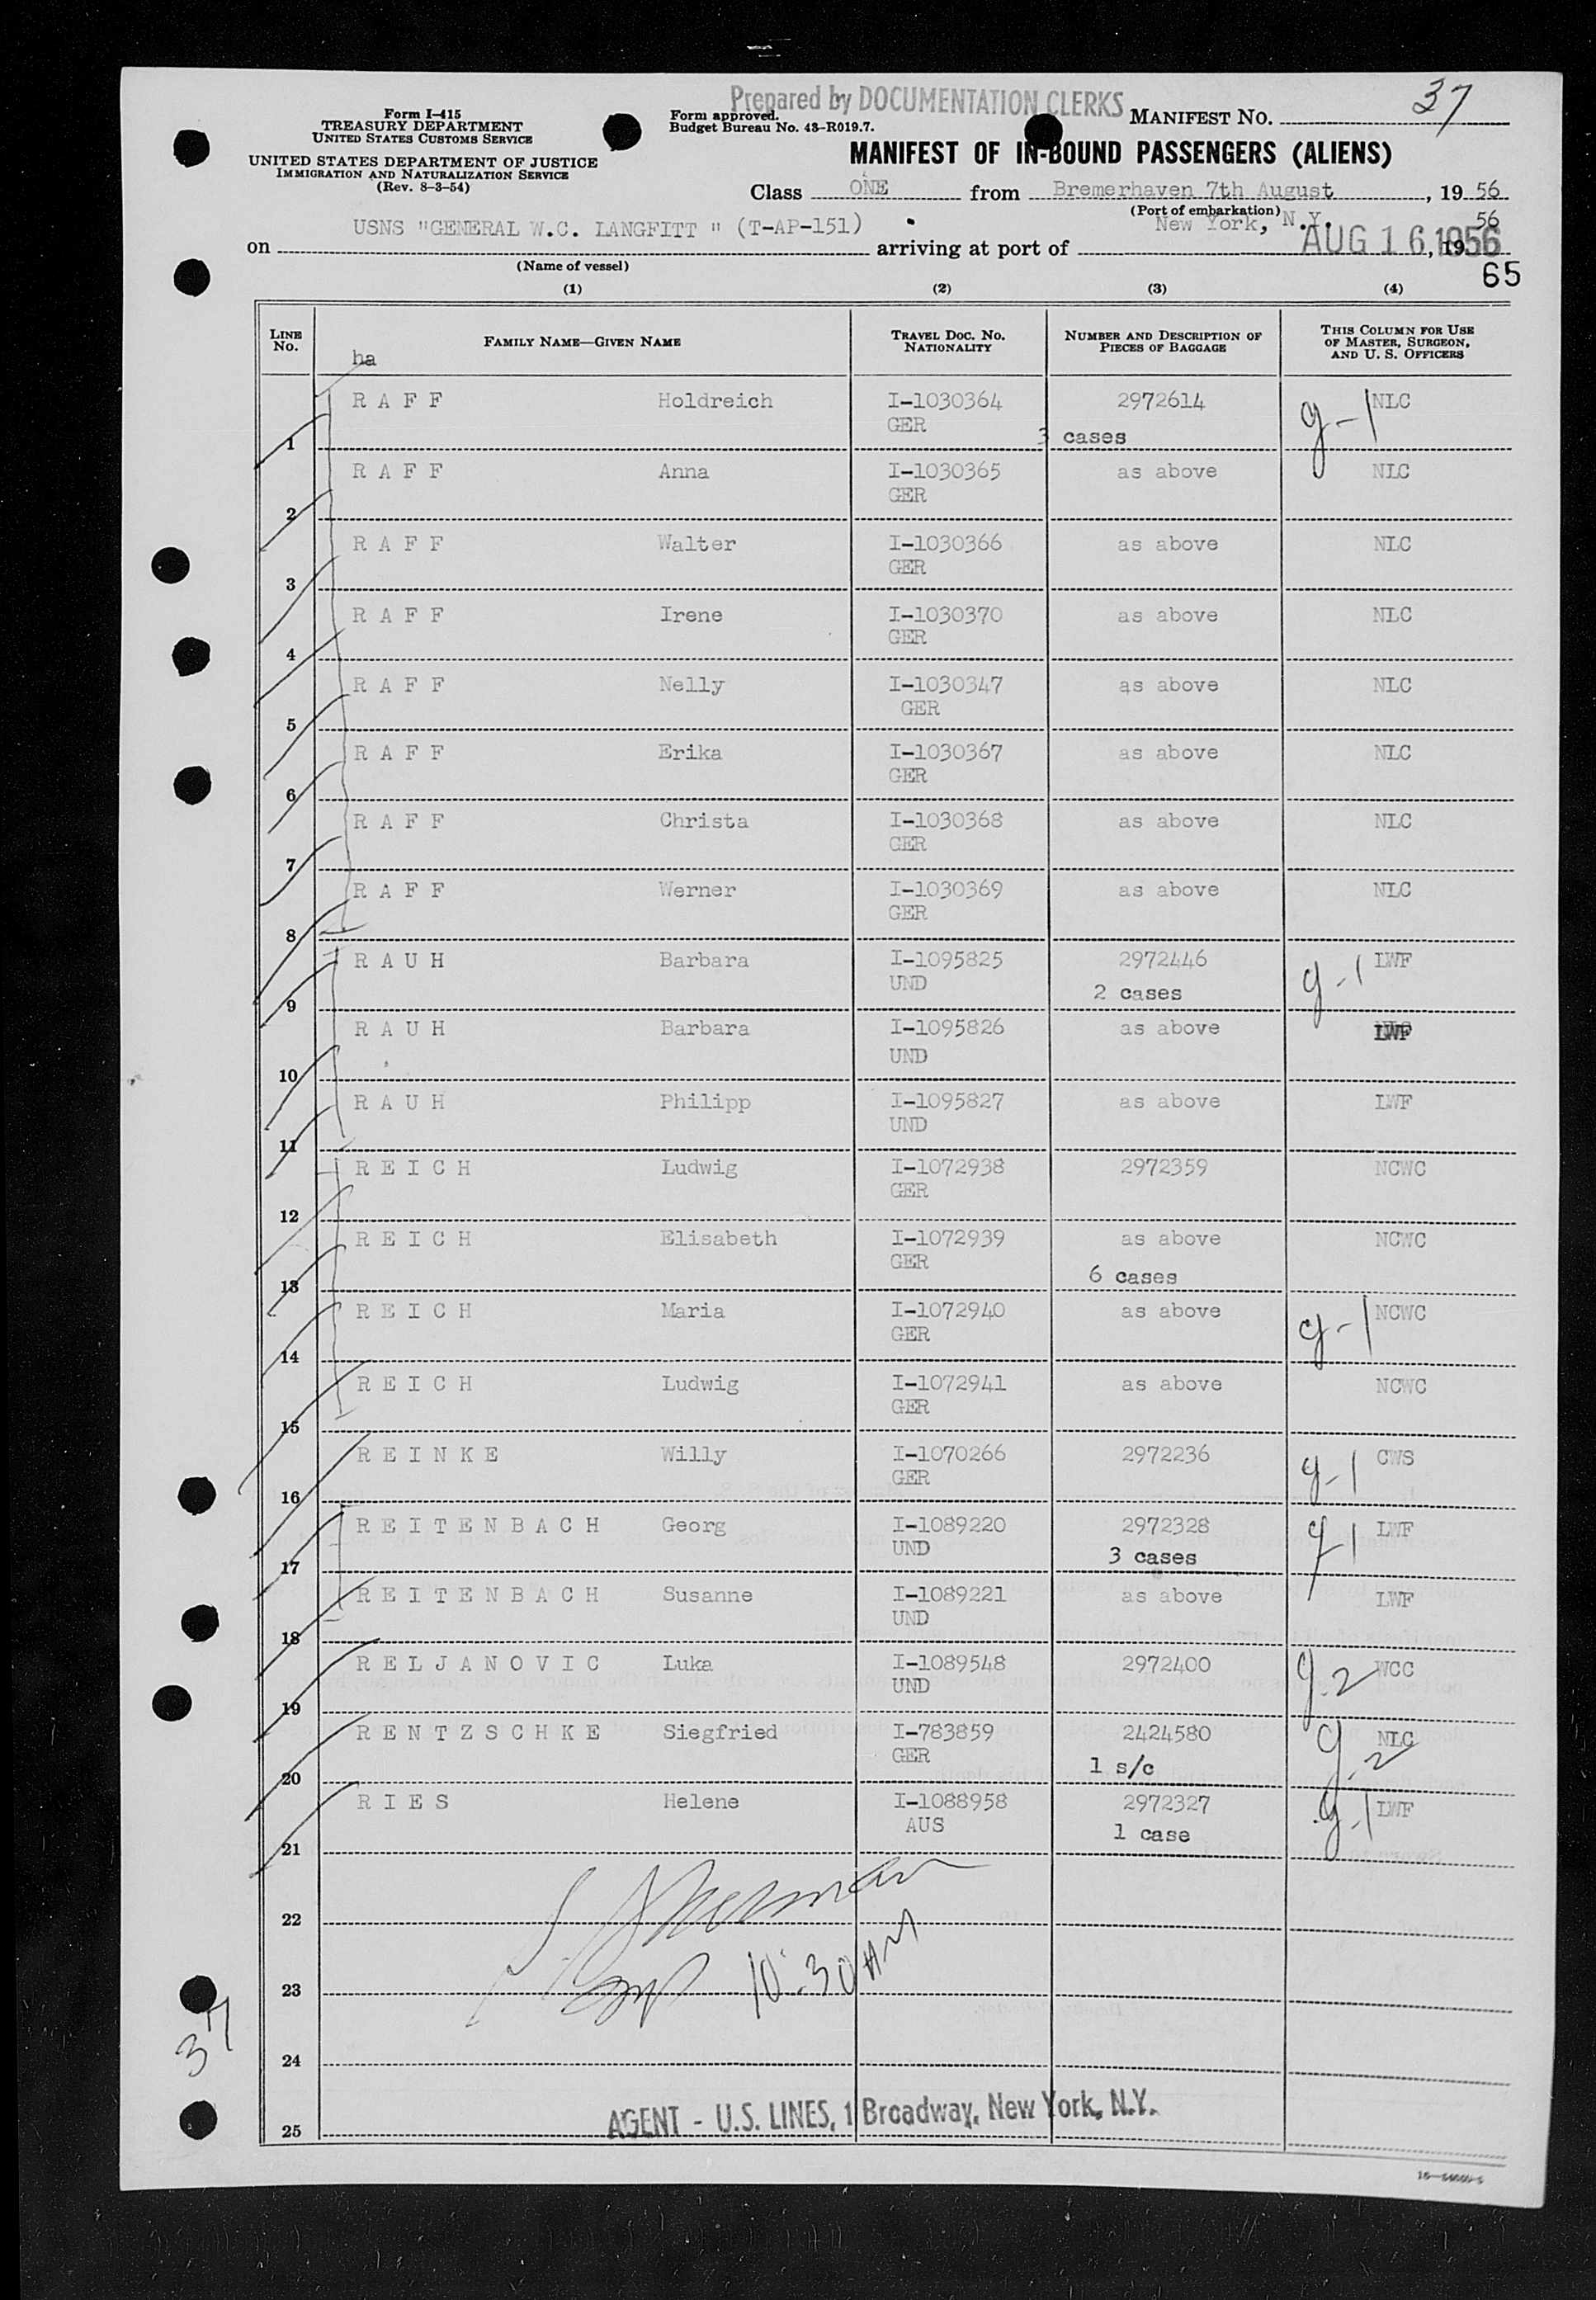 Prepared by DOCUMENTATION CLERKS
37
Form I-415
TREASURY DEPARTMENT
UNITED STATES CUSTOMS SERVICE
Form approved.
Budget Bureau No. 43-R019.7.
MANIFEST NO.
UNITED STATES DEPARTMENT OF JUSTICE
IMMIGRATION AND NATURALIZATION SERVICE
(Rev. 8-3-54)
MANIFEST OF IN-BOUND PASSENGERS (ALIENS)
Class ONE from Bremerhaven 7th August, 19 56
(Port of embarkation)
on USNS "GENERAL W.C. LANGFITT " (T-AP-151) arriving at port of New York, N.Y. , 19 56
AUG 16 1956
(Name of vessel)
65
(1) (2) (3) (4)
LINE NO. FAMILY NAME—GIVEN NAME TRAVEL DOC. NO. NATIONALITY NUMBER AND DESCRIPTION OF PIECES OF BAGGAGE THIS COLUMN FOR USE OF MASTER, SURGEON, AND U. S. OFFICERS
ha
R A F F Holdreich I-1030364 2972614 g-1 NLC
1 GER 3 cases
R A F F Anna I-1030365 as above NLC
2 GER
R A F F Walter I-1030366 as above NLC
3 GER
R A F F Irene I-1030370 as above NLC
4 GER
R A F F Nelly I-1030347 as above NLC
5 GER
R A F F Erika I-1030367 as above NLC
6 GER
R A F F Christa I-1030368 as above NLC
7 GER
R A F F Werner I-1030369 as above NLC
8 GER
R A U H Barbara I-1095825 2972446 g-1 LWF
9 UND 2 cases
R A U H Barbara I-1095826 as above LWF
10 UND
R A U H Philipp I-1095827 as above LWF
11 UND
R E I C H Ludwig I-1072938 2972359 NCWC
12 GER
R E I C H Elisabeth I-1072939 as above NCWC
13 GER 6 cases
R E I C H Maria I-1072940 as above g-1 NCWC
14 GER
R E I C H Ludwig I-1072941 as above NCWC
15 GER
R E I N K E Willy I-1070266 2972236 g-1 CWS
16 GER
R E I T E N B A C H Georg I-1089220 2972328 g-1 LWF
17 UND 3 cases
R E I T E N B A C H Susanne I-1089221 as above LWF
18 UND
R E L J A N O V I C Luka I-1089548 2972400 g-2 WCC
19 UND
R E N T Z S C H K E Siegfried I-783859 2424580 g-2 NLC
20 GER 1 s/c
R I E S Helene I-1088958 2972327 g-1 LWF
21 AUS 1 case
22
23
10:30 AM
24
37
25
AGENT - U.S. LINES, 1 Broadway, New York, N.Y.